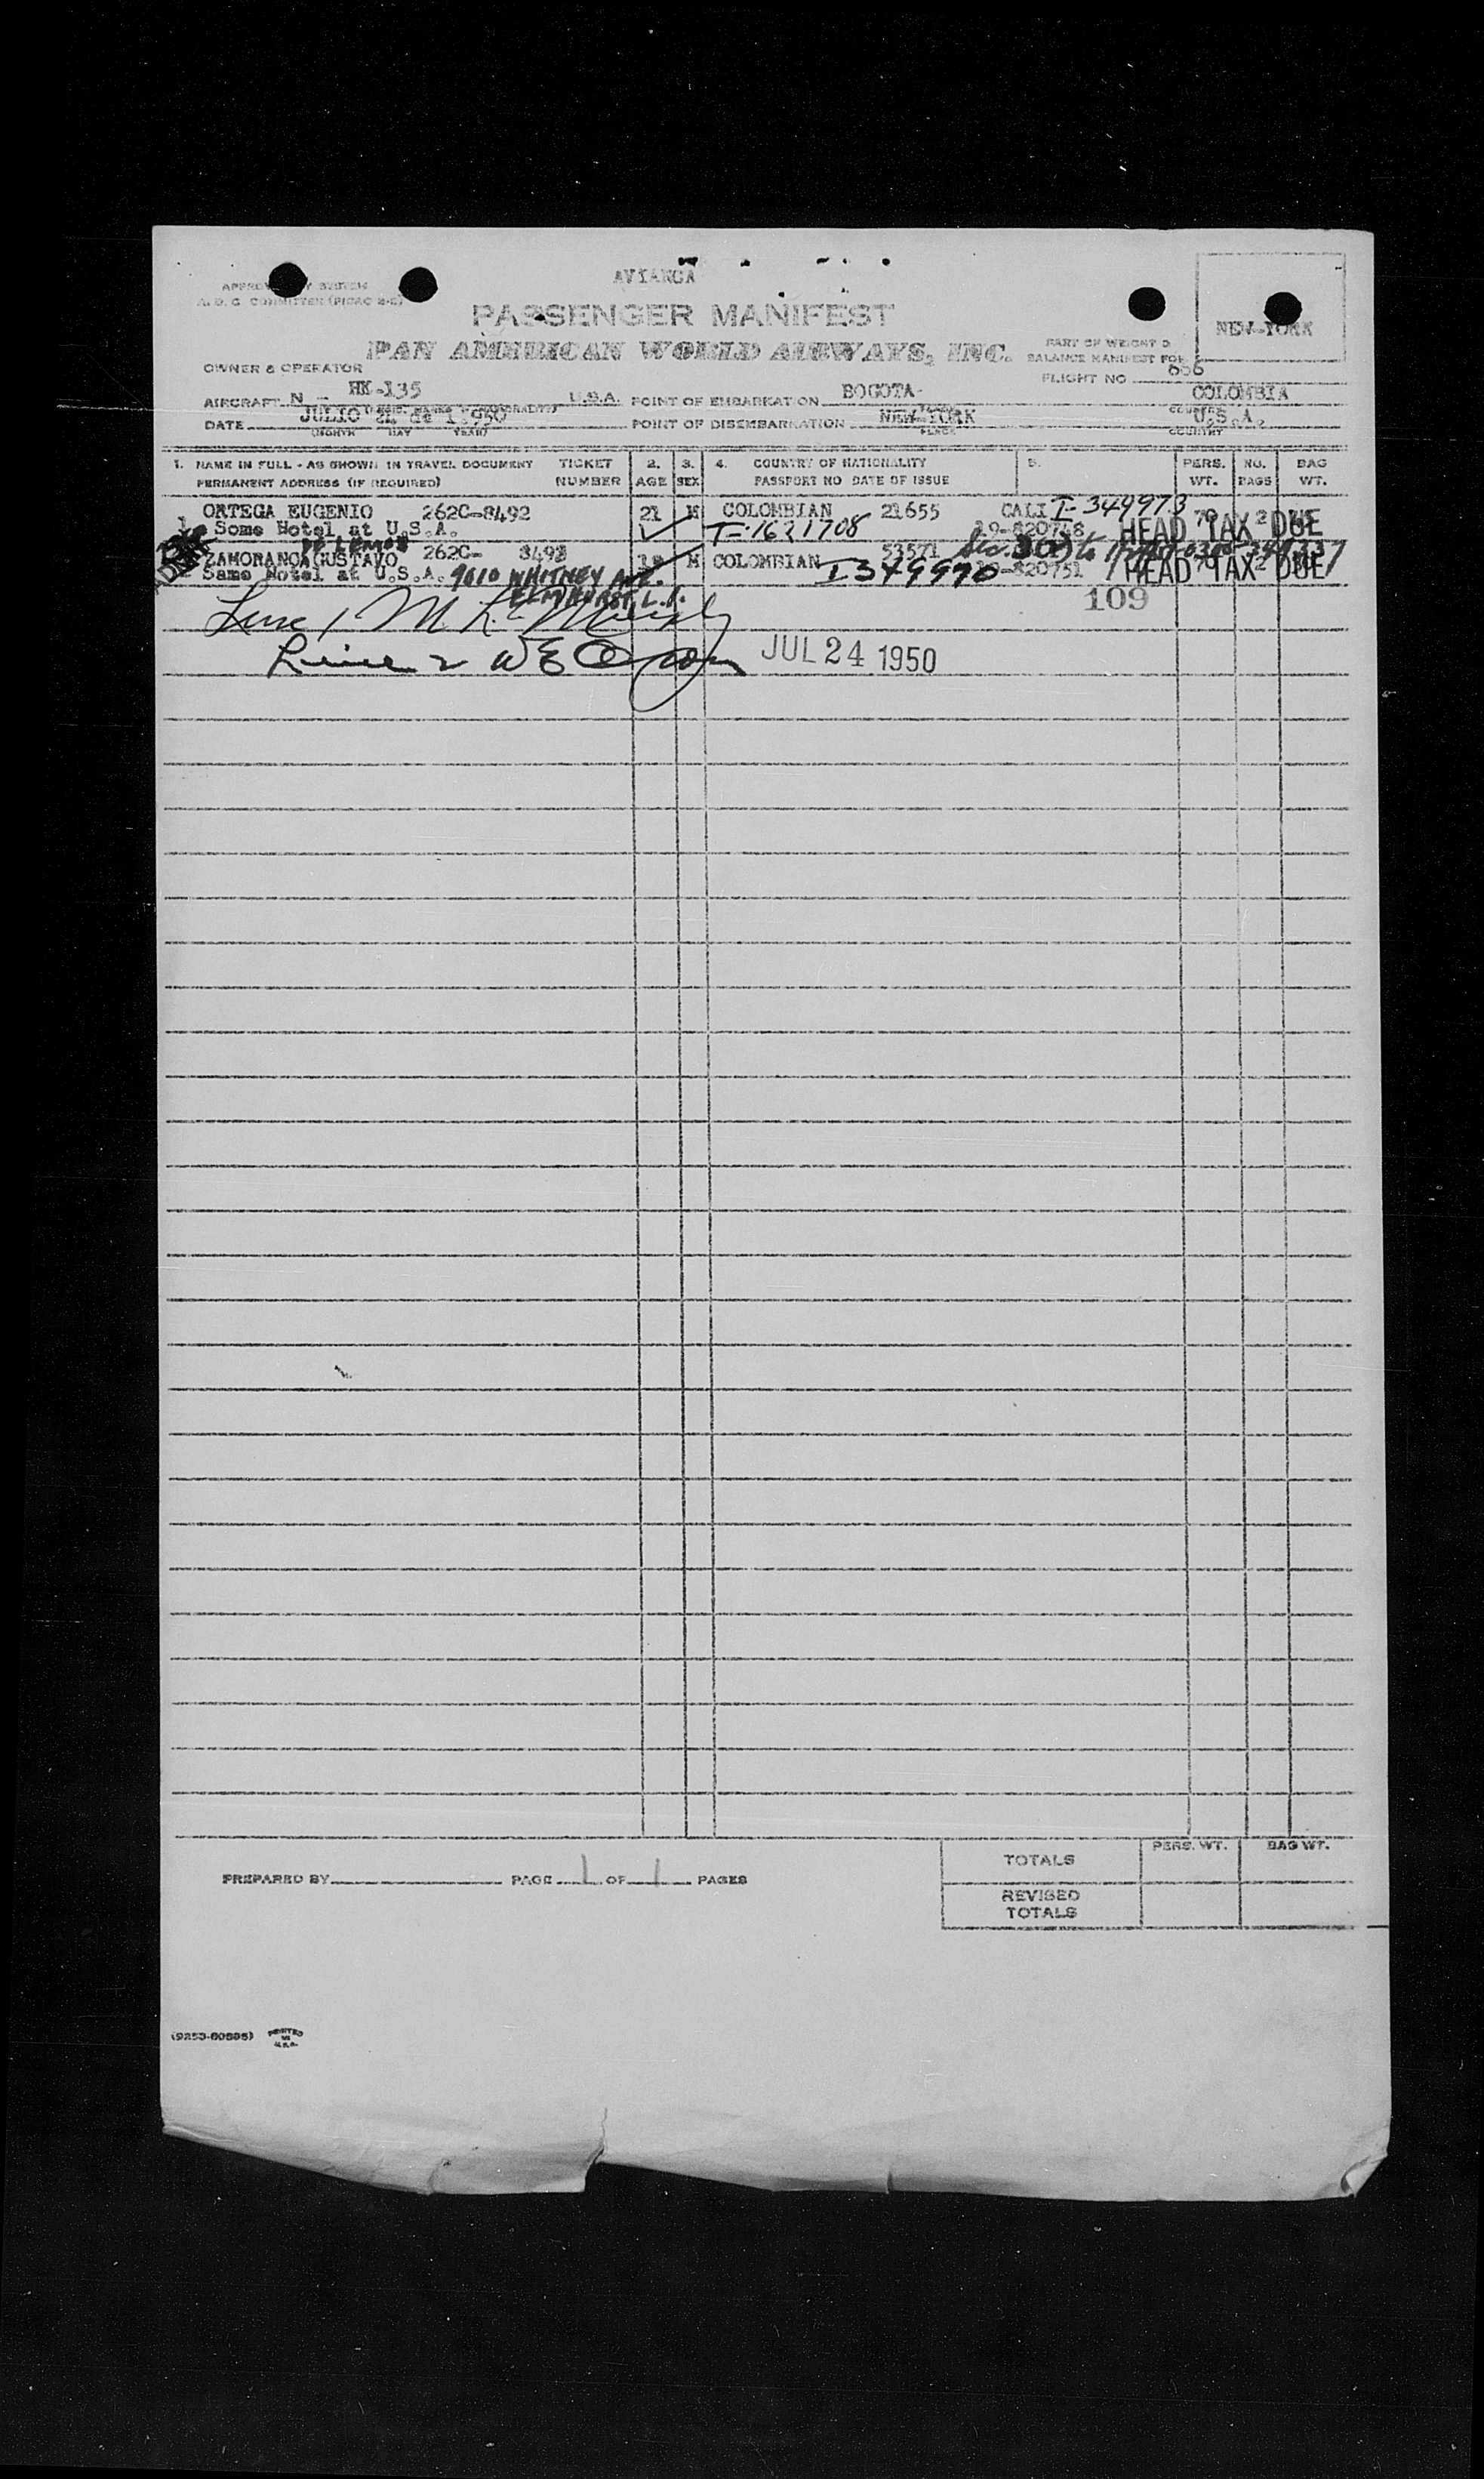 AVIANCA
PASSENGER MANIFEST
PAN AMERICAN WORLD AIRWAYS, INC.
NEW-YORK
PART OF WEIGHT &
BALANCE MANIFEST FOR
FLIGHT NO 666
OWNER & OPERATOR
AIRCRAFT N - HK-135 U.S.A. POINT OF EMBARKATION BOGOTA- COLOMBIA
DATE JULIO 24 de 1.950 POINT OF DISEMBARKATION NEW-YORK U.S.A.
(MONTH DAY YEAR) PLACE COUNTRY
1. NAME IN FULL - AS SHOWN IN TRAVEL DOCUMENT TICKET 2. 3. 4. COUNTRY OF NATIONALITY 5. PERS. NO. BAG
PERMANENT ADDRESS (IF REQUIRED) NUMBER AGE SEX PASSPORT NO DATE OF ISSUE WT. BAGS WT.
1 ORTEGA EUGENIO 262C-8492 21 M COLOMBIAN 21655 CALI I-349973
Some Hotel at U.S.A. T-1621708 19-820748 HEAD TAX DUE
DE LEMOS
ZAMORANO GUSTAVO 262C- 8493 M COLOMBIAN 53571
Same Hotel at U.S.A. 9010 WHITNEY AVE. I349970 19-820751 HEAD TAX DUE
ELMHURST, L.I. 109
Line 1
Line 2 JUL 24 1950
TOTALS PERS. WT. BAG WT.
PREPARED BY PAGE 1 OF 1 PAGES
REVISED
TOTALS
PRINTED
IN
U.S.A.